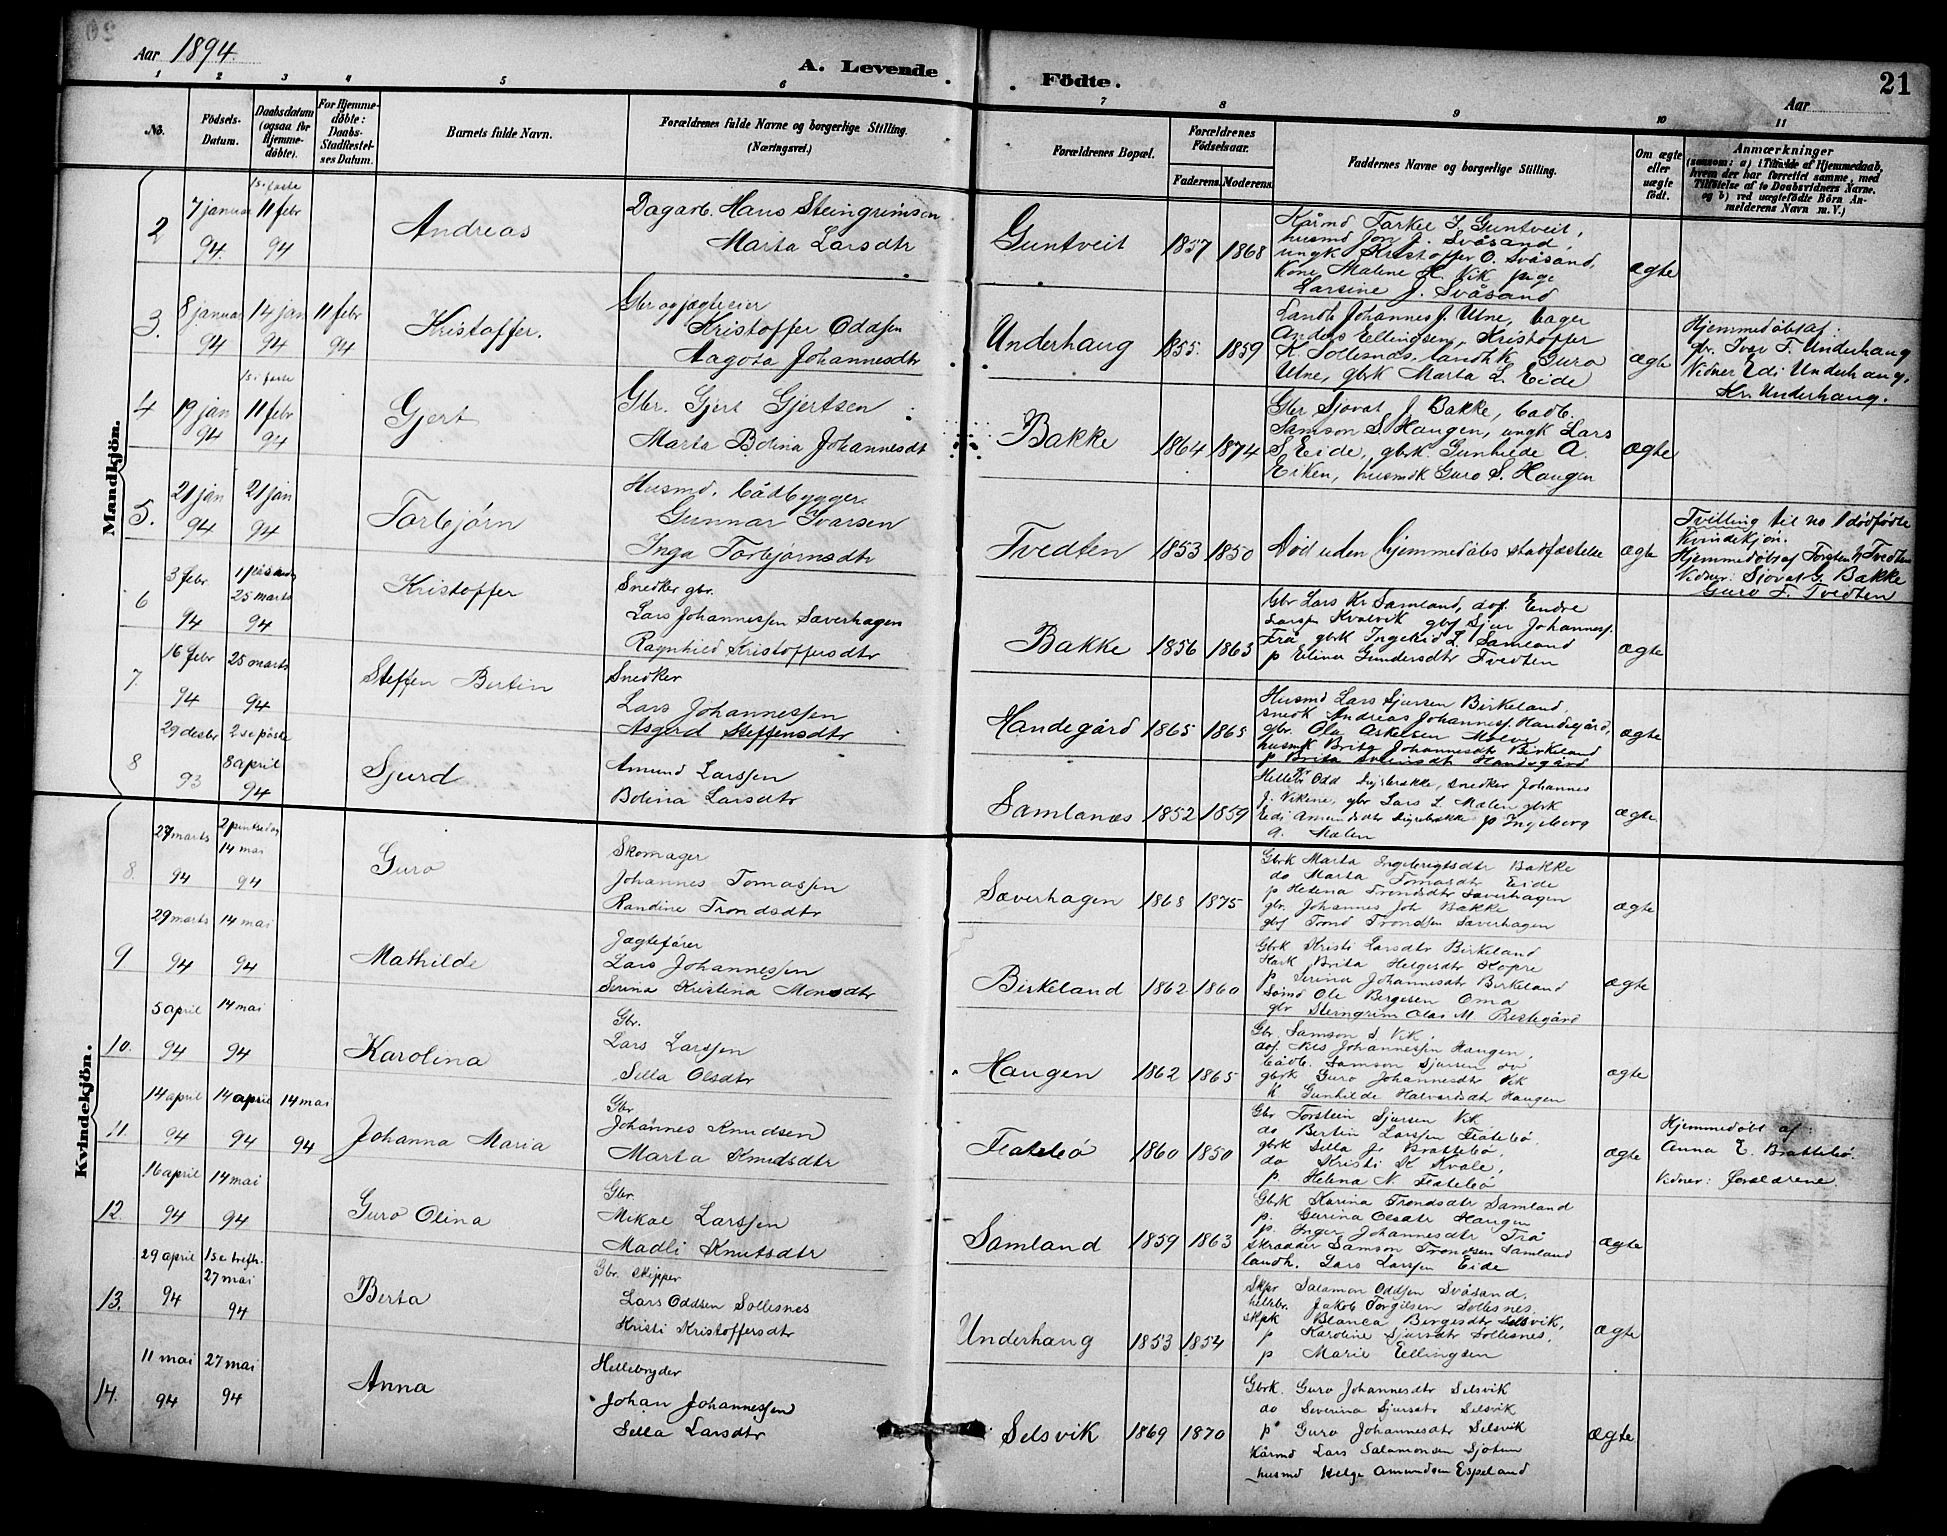 Aar 1894.
A. Levende Födte.
21
Aar
1 2 3 4 5 6 7 8 9 10 11
No.
Födsels-Datum.
Daabsdatum (ogsaa for Hjemme-döbte).
For Hjemme-döbte: Daabs-Stadfæstel-ses Datum.
Barnets fulde Navn.
Forældrenes fulde Navne og borgerlige Stilling. (Næringsvei.)
Forældrenes Bopæl.
Forældrenes Födselsaar.
Faderens. Moderens.
Faddernes Navne og borgerlige Stilling.
Om ægte eller uægte födt.
Anmærkninger
(saasom: a) i Tilfælde af Hjemmedaab, hvem der har forrettet samme, med Tilföielse af to Daabsvidners Navne. og b) ved uægtefödte Börn An-melderens Navn m. V.)
Mandkjön.
2
7 januar 94.
1s. i faste 11 febr 94
Andreas
Dagarb. Hans Steingrimsen
Marta Larsdtr
Guntveit
1857 1868
Kårmd Tarkel I. Guntveit,
husmd Jon J. Svåsand,
ungk Kristoffer O. Svåsand,
Kone Malene H. Vik pige
Larsine J. Svåsand
ægte
3.
8 januar 94
14 jan 94
11 febr 94
Kristoffer.
Gbr og jægteeier
Kristoffer Oddsen
Aagota Johannesdtr
Underhaug
1855. 1859
Landh Johannes J. Utne, bager
Anders Ellingsen, Kristoffer
K. Sollesnæs, landhk Guro
Utne, gbrk Marta L. Eide
ægte
Hjemmedøbt af:
gbr. Iver T. Underhaug
Vidner Edi Underhaug,
Kr. Underhaug.
4
19 jan 94
1s. i faste 11 febr 94
Gjert
Gbr. Gjert Gjertsen
Marta Bolina Johannesdt
Bakke
1864 1874
Gbr Sjovat J. Bakke, badb.
Samson S. Haugen, ungk Lars
S. Eide, gbrk. Gunhilde A.
Eiken, husmdk Guro S. Haugen
ægte
5.
21 jan 94
21 jan 94
Torbjørn
Husmd. bådbygger
Gunnar Ivarsen
Inga Torbjørnsdtr
Tvedten
1853 1850
Død uden hjemmedøbs stadfæstelse
ægte
Tvilling til no 1 dødfødte
Kvindekjøn.
Hjemmedøbt af Torsten Tvedten
Vidner: Sjovat G. Bakke
Guro T. Tvedten
6
3 febr 94
1 påskedag 25 marts 94
Kristoffer
Snedker gbr.
Lars Johannessen Sæverhagen
Ragnhild Kristoffersdtr
Bakke
1856 1863
Gbr Lars Kr Samland, dof. Endre
Larsen Kvalvik gbs Sjur Johanness.
Trå gbrk Ingerid L. Samland
p Elina Gundersdtr Tvedten
ægte
7.
16 febr 94
25 marts 94
Steffen Bertin
Snedker
Lars Johannessen
Asgerd Steffensdtr
Handegård
1865 1865
Husmd Lars Sjursen Birkeland,
snedk Andreas Johanness. Handegård,
gbr. Ola Askelsen
husmk Brita Johannesdtr Birkeland
p Brita Handegård
ægte
8
29 desbr 93
2 s e påske 8 april 94
Sjurd
Amund Larssen
Bolina Larsdtr
Samlanæs
1852 1859
Hellebr Odd Digrebrække, snedker Johannes
J. Vikene, gbr Lars L. Mælen gbrk
Edi Amundsdtr Digrebrække p Ingeborg
A. Mælen
ægte
Kvindekjön.
8.
27 marts 94
2 pintsedag 14 mai 94
Guro
Skomager
Johannes Tomassen
Randine Trondsdtr
Sæverhagen
1868 1875
Gbrk Marta Ingebrigtsdtr Bakke
do Marta Tomasdtr Eide
p Helena Trondsdtr Sæverhagen
gbr. Johannes Joh Bakke
gbs Trond Trondsen Sæverhagen
ægte
9
29 marts 94
14 mai 94
Mathilde
Jægtefører
Lars Johannessen
Serina Kristina Monsdtr
Birkeland
1862 1860
Gbrk Kristi Larsdtr Birkeland
Kark Brita Helgesdtr Kopre
p Serina Johannesdtr Birkeland
Sømd Ole Bergesen Oma
gbr Sterngrim Olas M. Prestegård
ægte
10.
5 april 94
14 mai 94
Karolina
Gbr.
Lars Larssen
Sella Olsdtr
Haugen
1862 1865
Gbr. Samson S. Vik,
dof. Nils Johannessen Haugen,
bådb. Samson Sjursen do
gbrk Guro Johannesdtr Vik
K Gunhilde Halvorsdt Haugen
ægte
11.
14 april 94
14 april 94
14 mai 94
Johanna Maria
Gbr
Johannes Knudsen
Marta Knudsdtr
Flatebø
1860 1850
Gbr Torstein Sjursen Vik
do Bertin Larssen Flatebø.
gbrk Sella J. Brattebø,
do Kristi K Kvale,
p. Helena N. Flatebø
ægte
Hjemmedøbt af:
Anna E. Brattebø.
Vidner: forældrene
12.
16 april 94
14 mai 94
Guro Olina
Gbr
Mikal Larssen
Madli Knutsdtr
Samland
1859 1863
Gbrk Karina Trondsdtr Samland
p. Gurina Olsdtr Haugen
p. Inger Johannesdtr Trå
skrædder Samson Trondsen Samland
landh. Lars Larssen Eide
ægte
13.
29 april 94
1 s e trefh. 27 mai 94
Berta
Gbr. skipper
Lars Oddsen Sollesnes
Kristi Kristoffersdtr
Underhaug
1853 1854
Skpr Salamon Oddsen Svåsand.
hellebr. Jakob Torgilsen Sollesnes.
skpk Blanca Bergesdtr Selsvik,
p Karoline Sjursdtr Sollesnes,
p Marie Ellingsen
ægte
14.
11 mai 94
27 mai 94
Anna
Hellebryder
Johan Johannessen
Sella Larsdtr
Selsvik
1869 1870
Gbrk. Guro Johannesdtr Selsvik
do Severina Sjursdtr Selsvik
p Guro Johannesdtr Selsvik
Kårmd Lars Salamonsen Sjotun
husmd Helge Amundsen Espeland
ægte